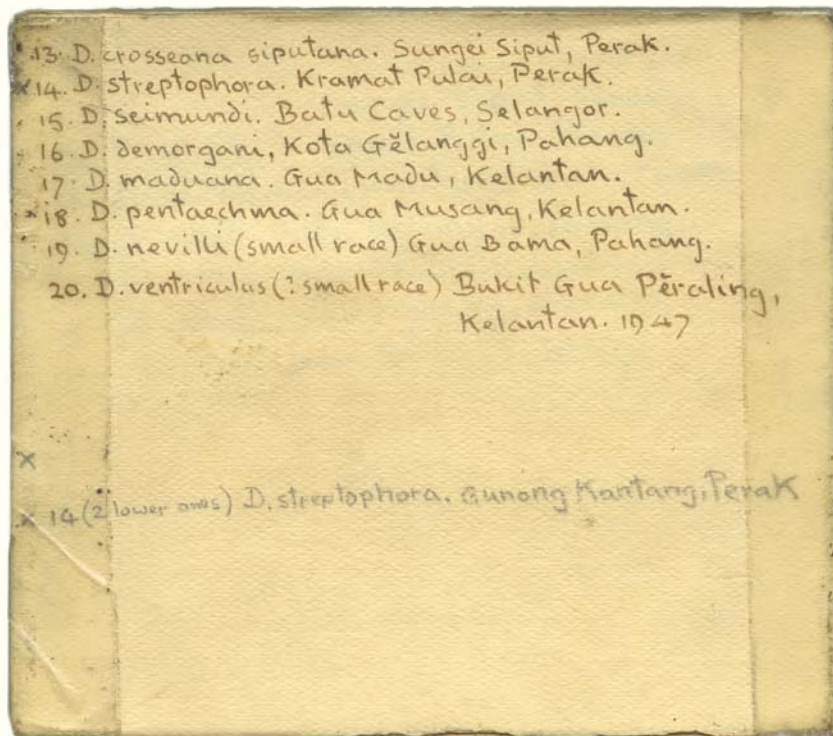 13. D. crosseana siputana. Sungei Siput, Perak.
x 14. D. streptophora. Kramat Pulai, Perak.
15. D. seimundi. Batu Caves, Selangor.
16. D. demorgani, Kota Gĕlanggi, Pahang.
17. D. maduana. Gua Madu, Kelantan.
x 18. D. pentaechma. Gua Musang, Kelantan.
19. D. nevilli (small race) Gua Bama, Pahang.
20. D. ventriculus (? small race) Bukit Gua Pĕraling,
Kelantan. 1947
x
x 14 (2 lower ones) D. streptophora. Gunong Kantang, Perak